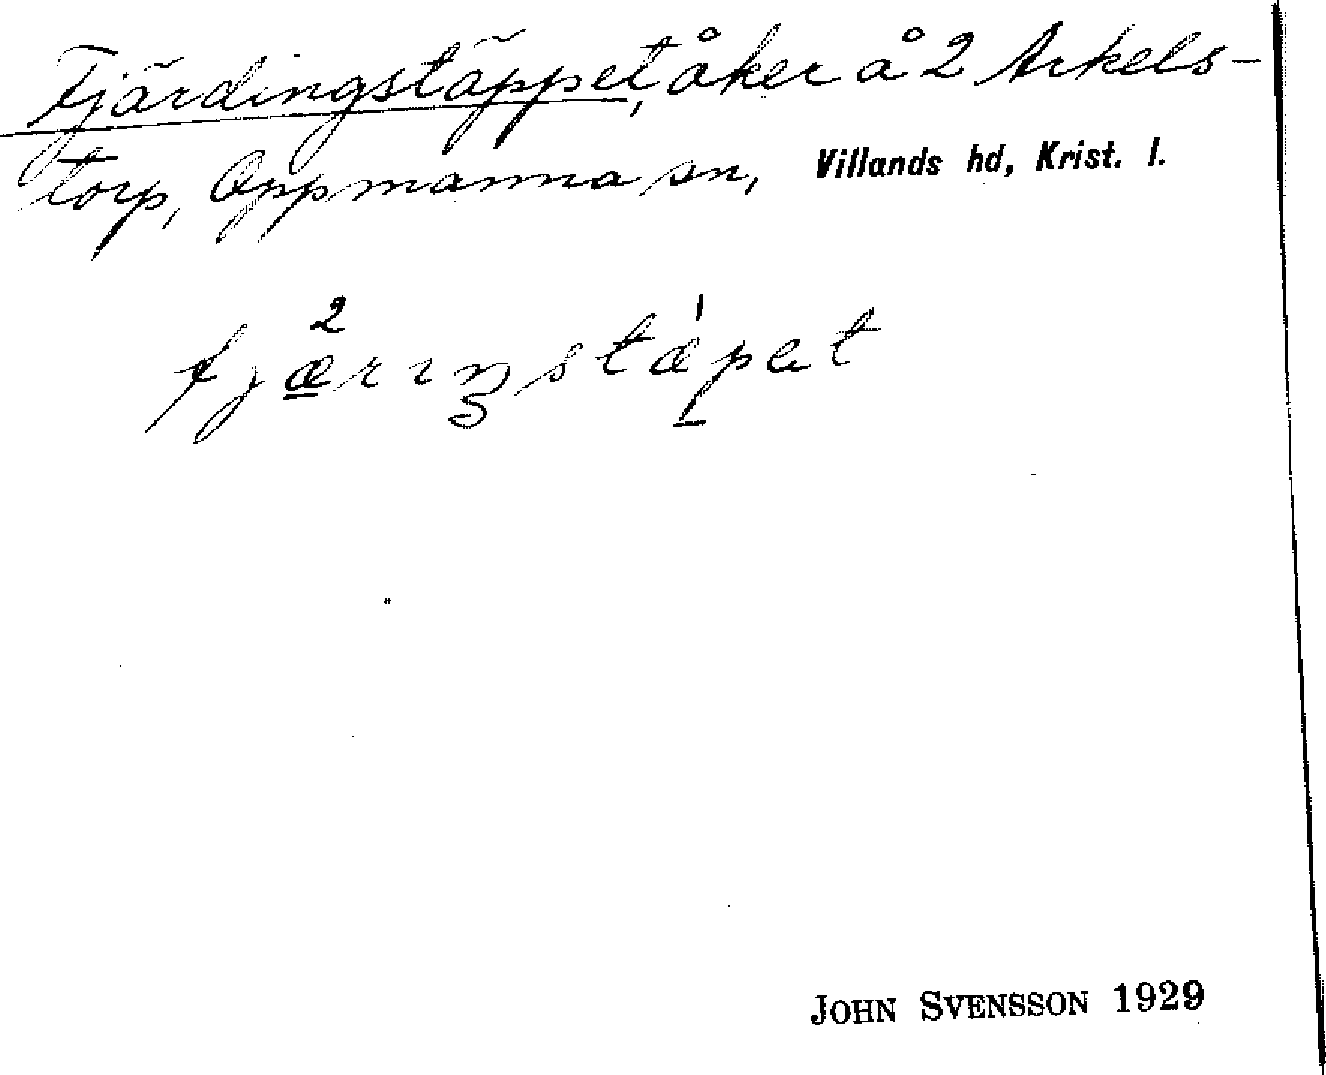 Fjärdingstäppet, åker å 2 Arkels-
torp, Oppmanna sn, Villands hd, Krist. l.
fjæ̲²rɪŋstæ̲̍pet
JOHN SVENSSON 1929